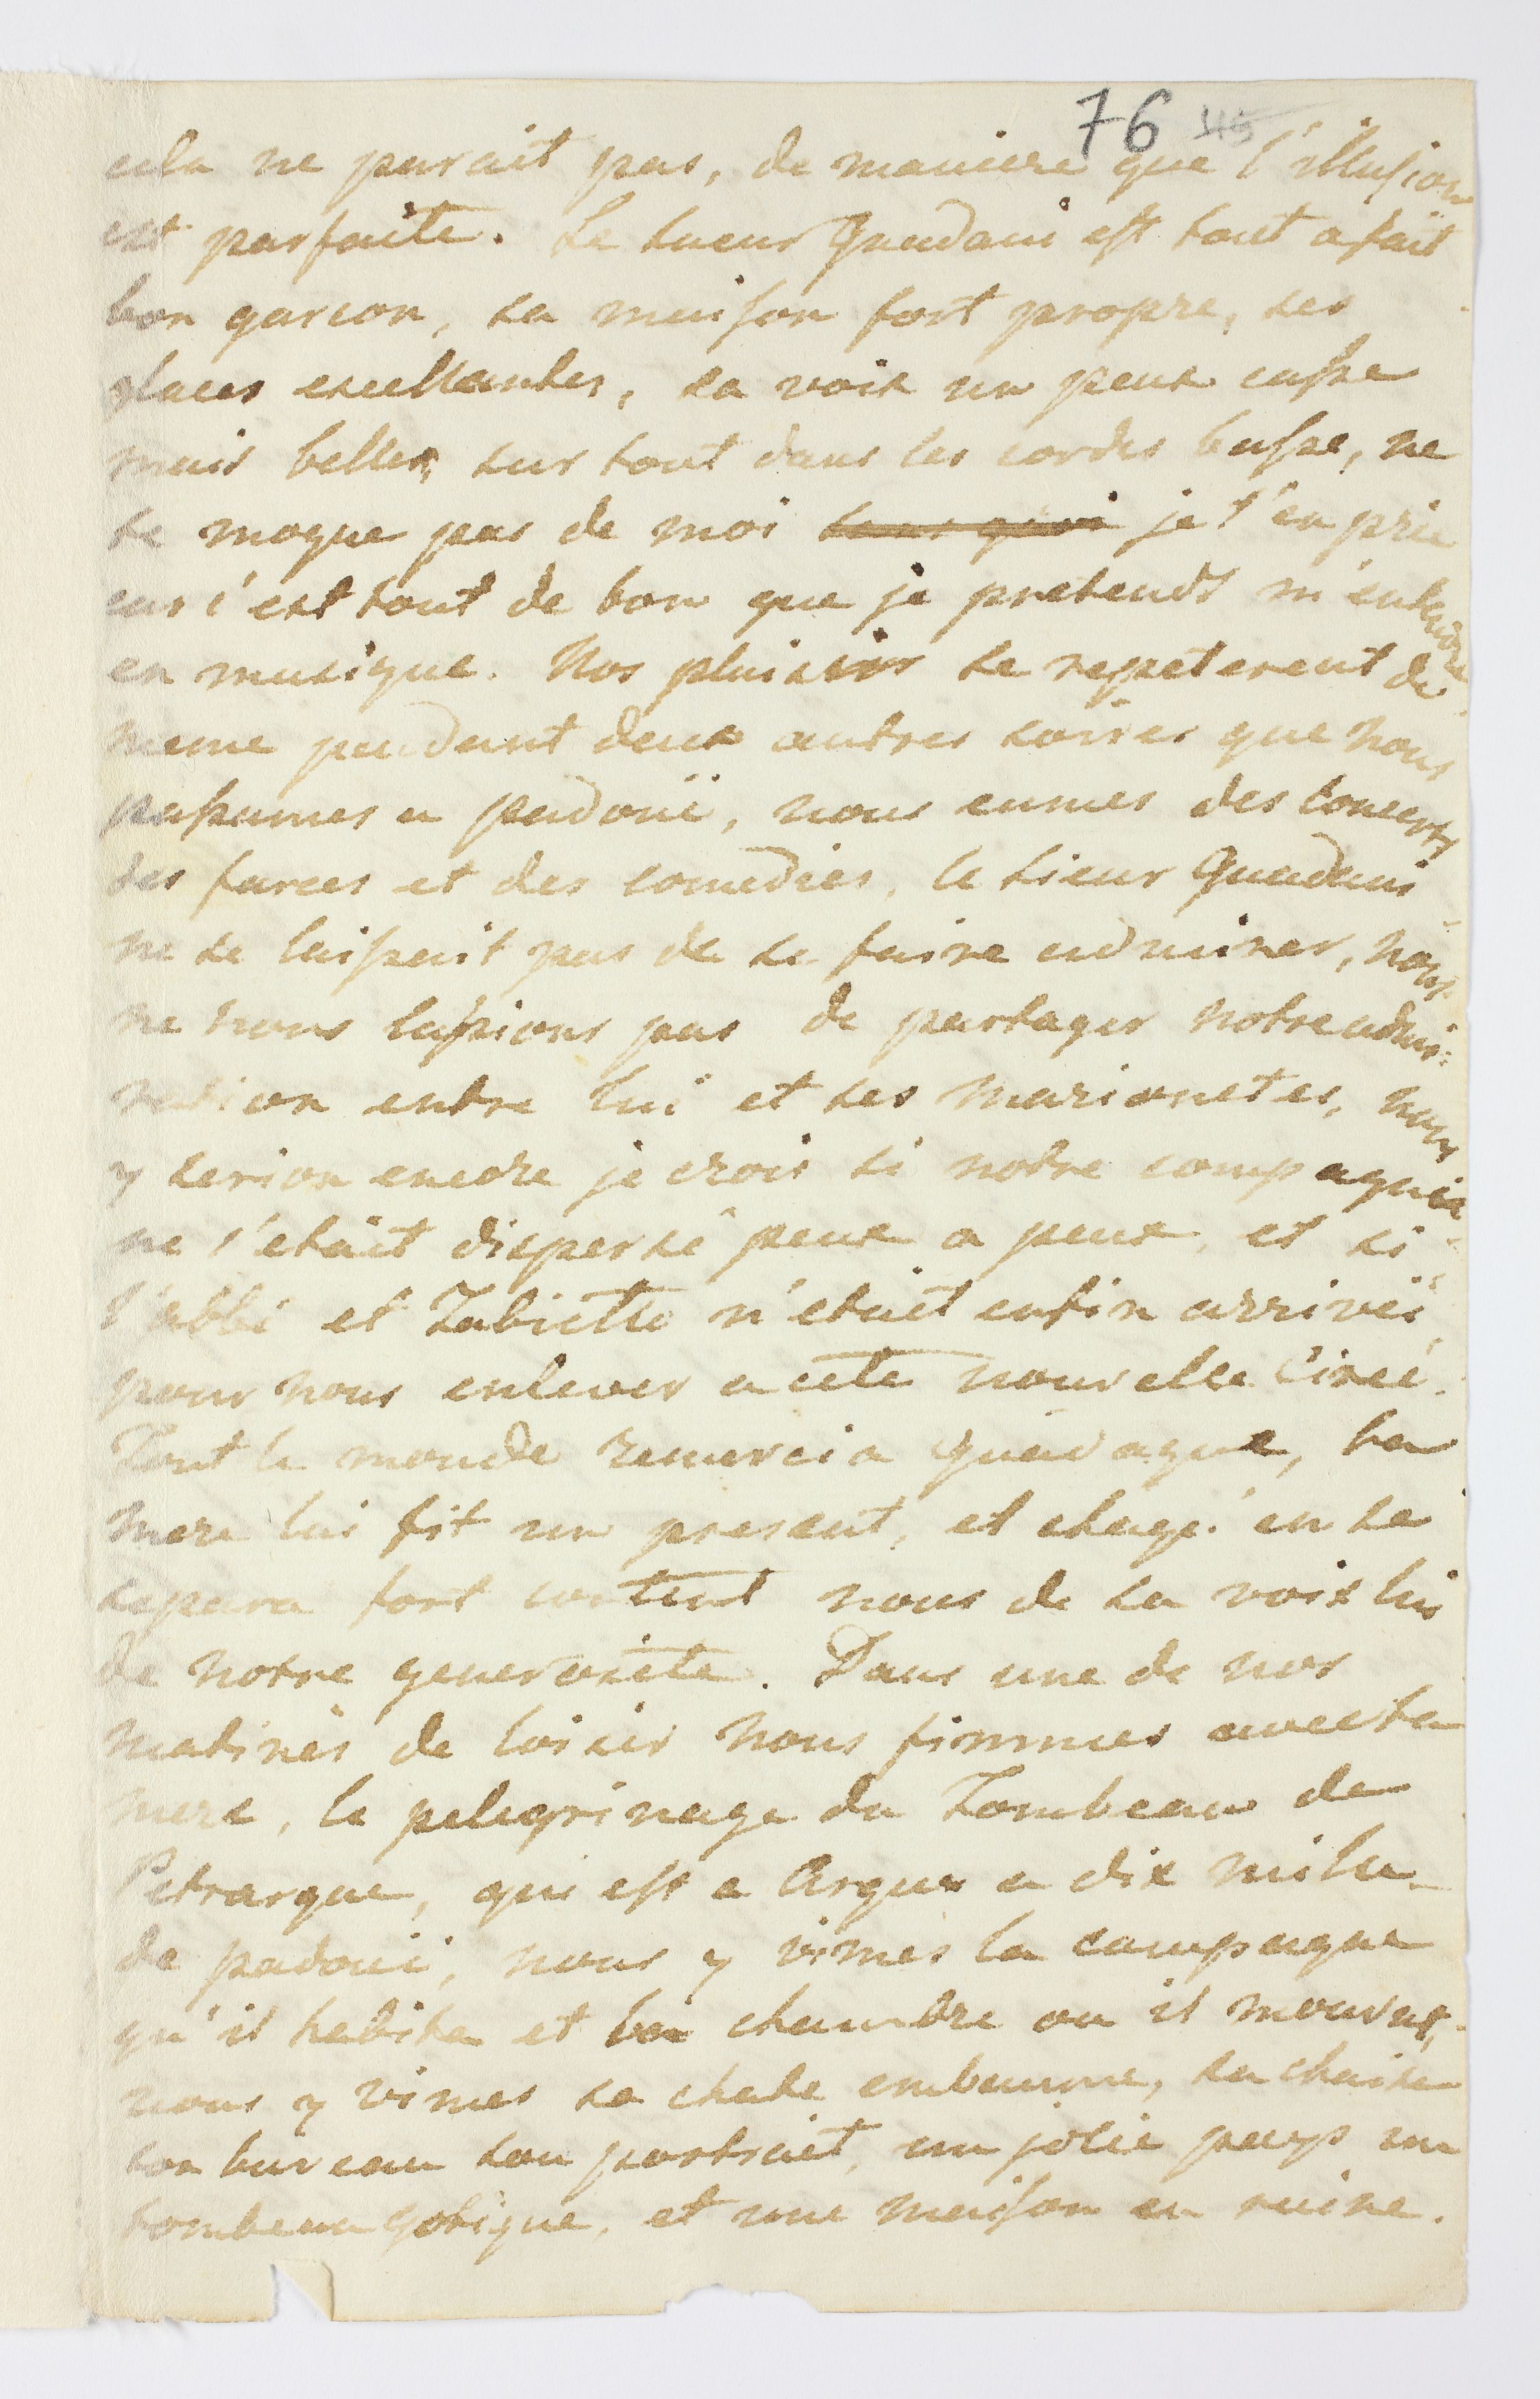 76 45
cela ne parait pas, de maniere que l'illusion
est parfaite. Le sieur Guadani est tout a fait
bon garcon, sa maison fort propre, ses
glaces excellantes, sa voix un peux casse
mais belles, sur tout dans les cordes basse, ne
te moque pas de moi je t'en prie
car c'est tout de bon que je pretends m'entendre
en musique. Nos plaisirs se repeterent de
meme pendant deux autres soirés que nous
passames a padoüe, nous eumes des concerts
des farces et des comedies, le sieur Guadani
ne se laissait pas de se faire admirer, nous
ne nous lassions pas de partager notre admi=
ration entre lui et ses marionetes, nous
y serion encore je crois si notre compagnie
ne s'etait dispersé peux a peux, et si
l'abbé et Zabiette n'etait enfin arriveé
pour nous enlever a cete nouvelle Circé.
Tout le monde remercia Guadagne, ta
mere lui fit un present, et chaqu'en se
separa fort content nous de sa voix lui
de notre generosité. Dans une de nos
matinés de loisir nous fimmes avec ta
mere, le peligrinage du Tombeau de
Petrarque, qui est a Arqua a dix mille
de padoüe, nous y vimes la campagne
qu'il habita et la chambre ou il mourut,
nous y vimes sa chate embaume, sa chaise
son bureau son portrait, un jolie pays un
tombeau gotique, et une maison en ruine.